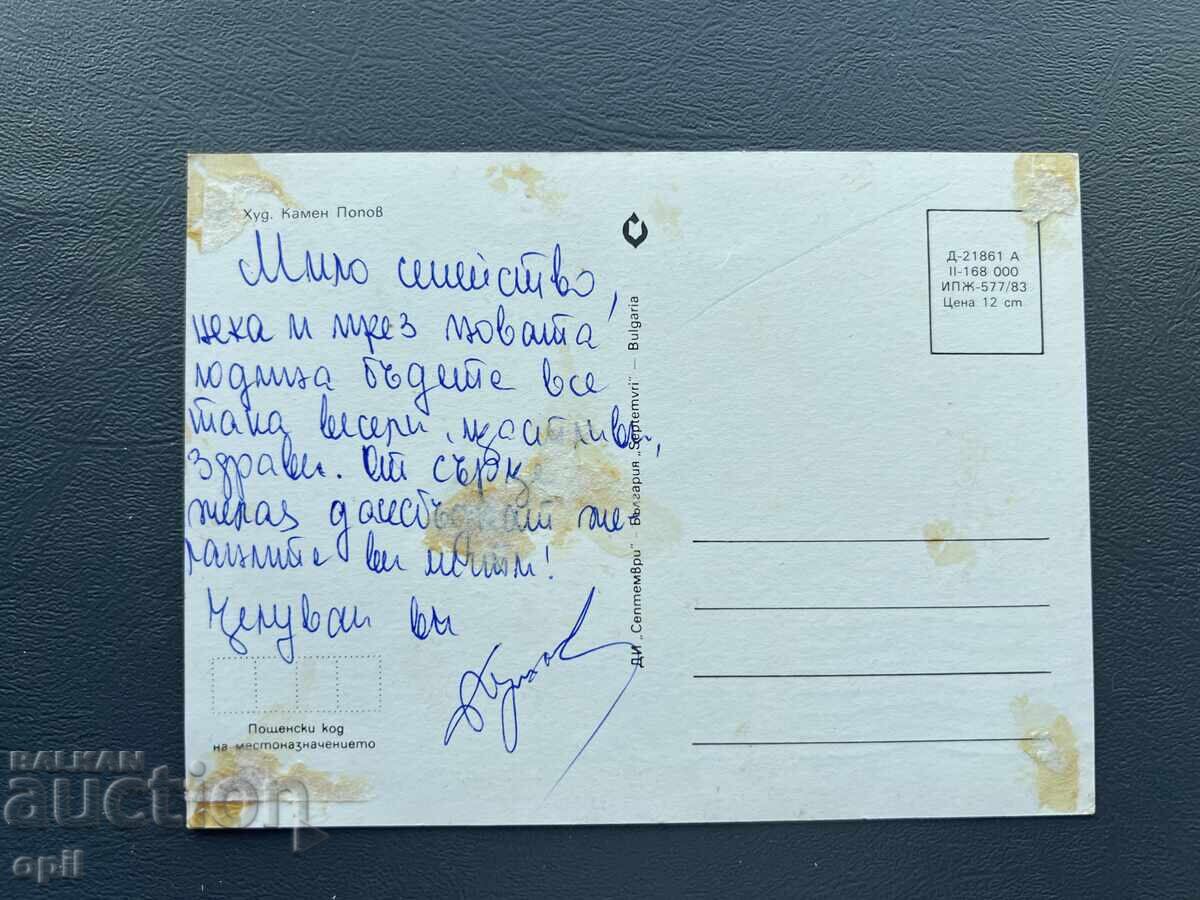 Худ. Камен Попов
Мило семейство,
нека и през новата
година бъдете все
така весели, щастливи,
здрави. От сърце
желая да се сбъднат же-
ланите ви мечти!
Целувам ви
Пощенски код
на местоназначението
ДИ „Септември" — България „Septemvri" — Bulgaria
Д-21861 А
II-168 000
ИПЖ-577/83
Цена 12 ст
BALKAN
auction
opil